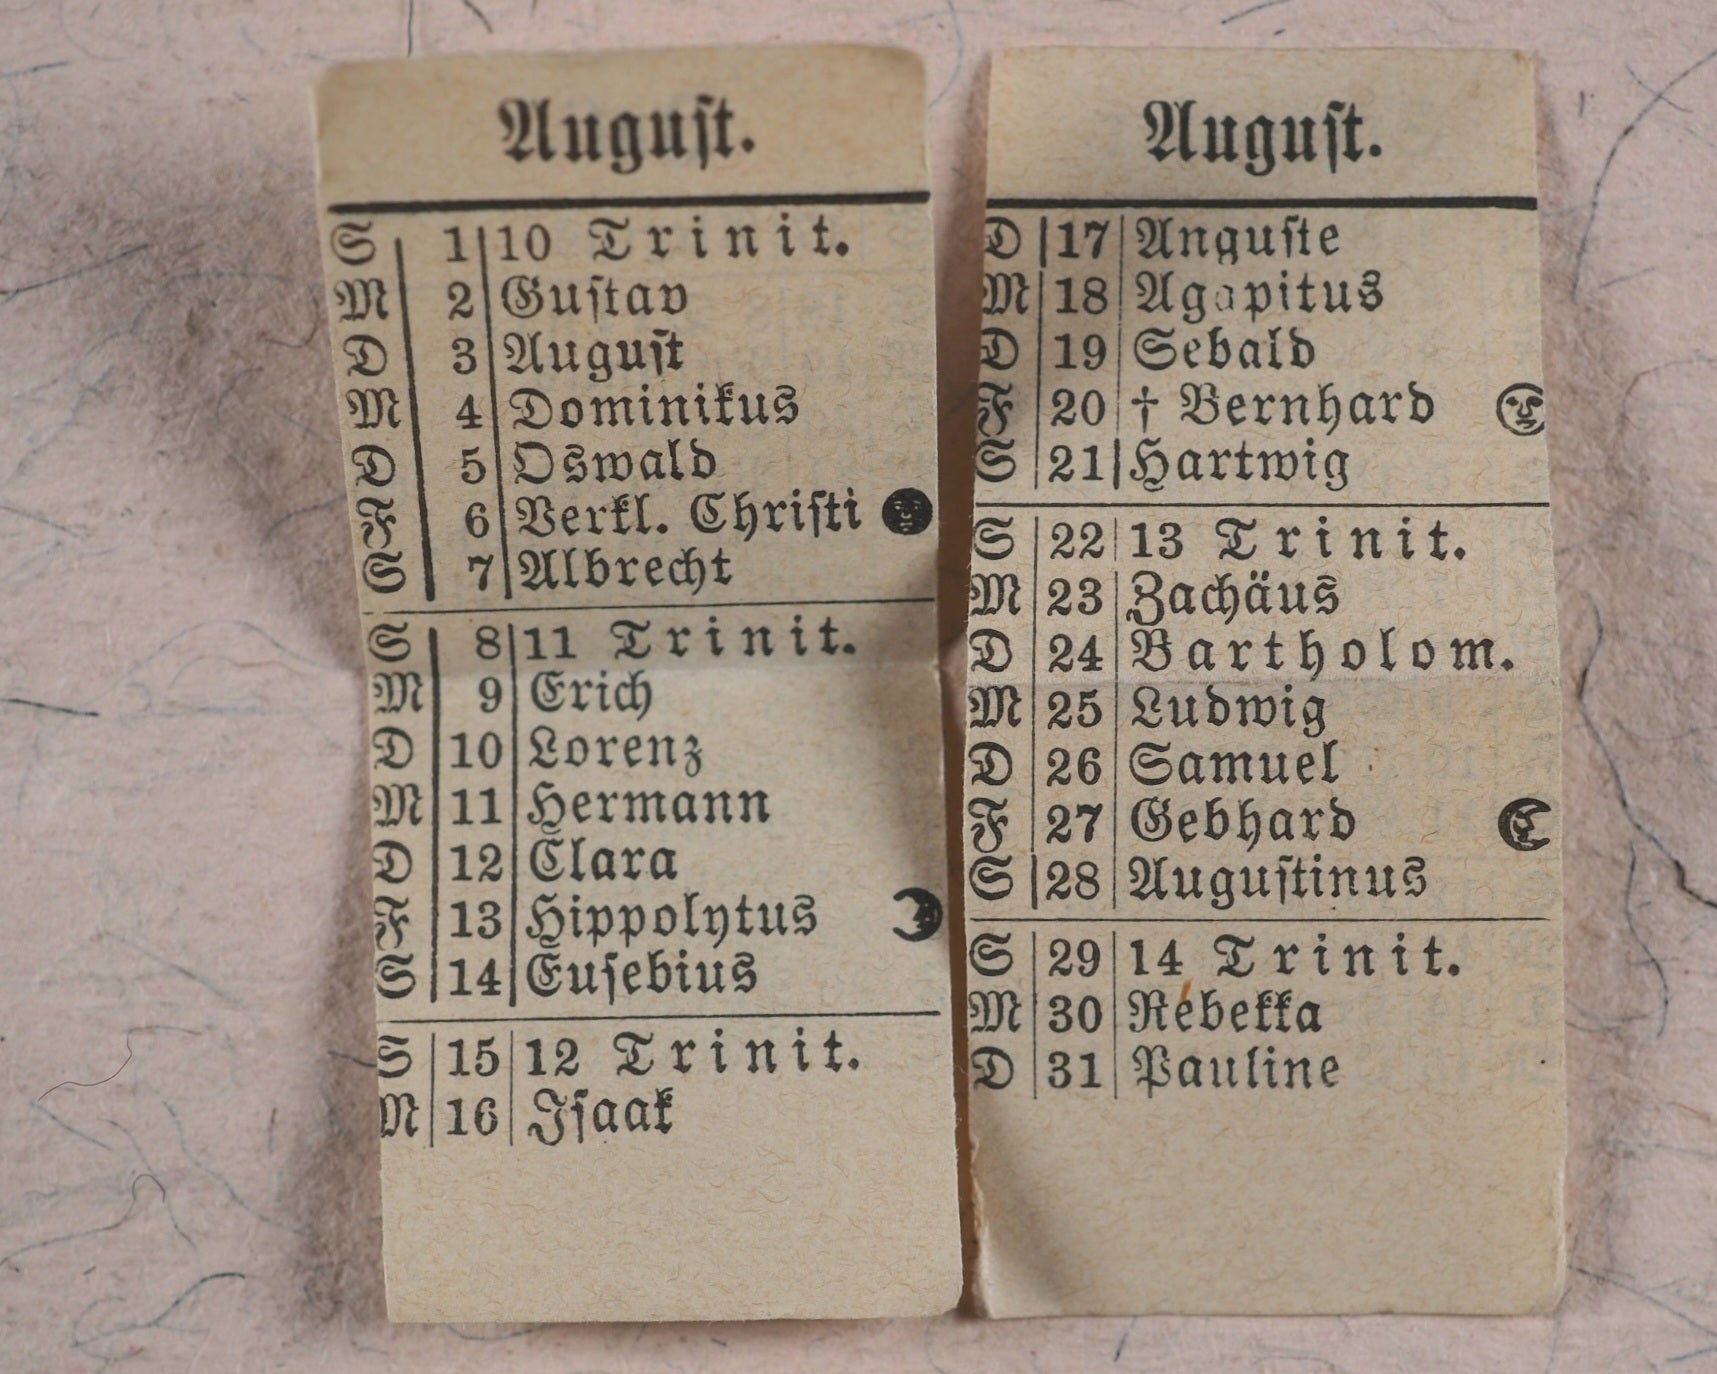 August.
S 1 10 Trinit.
M 2 Gustav
D 3 August
M 4 Dominikus
D 5 Oswald
F 6 Verkl. Christi
S 7 Albrecht
S 8 11 Trinit.
M 9 Erich
D 10 Lorenz
M 11 Hermann
D 12 Clara
F 13 Hippolytus
S 14 Eusebius
S 15 12 Trinit.
M 16 Isaak
August.
D 17 Anguste
M 18 Agapitus
D 19 Sebald
F 20 † Bernhard
S 21 Hartwig
S 22 13 Trinit.
M 23 Zachäus
D 24 Bartholom.
M 25 Ludwig
D 26 Samuel
F 27 Gebhard
S 28 Augustinus
S 29 14 Trinit.
M 30 Rebekka
D 31 Pauline